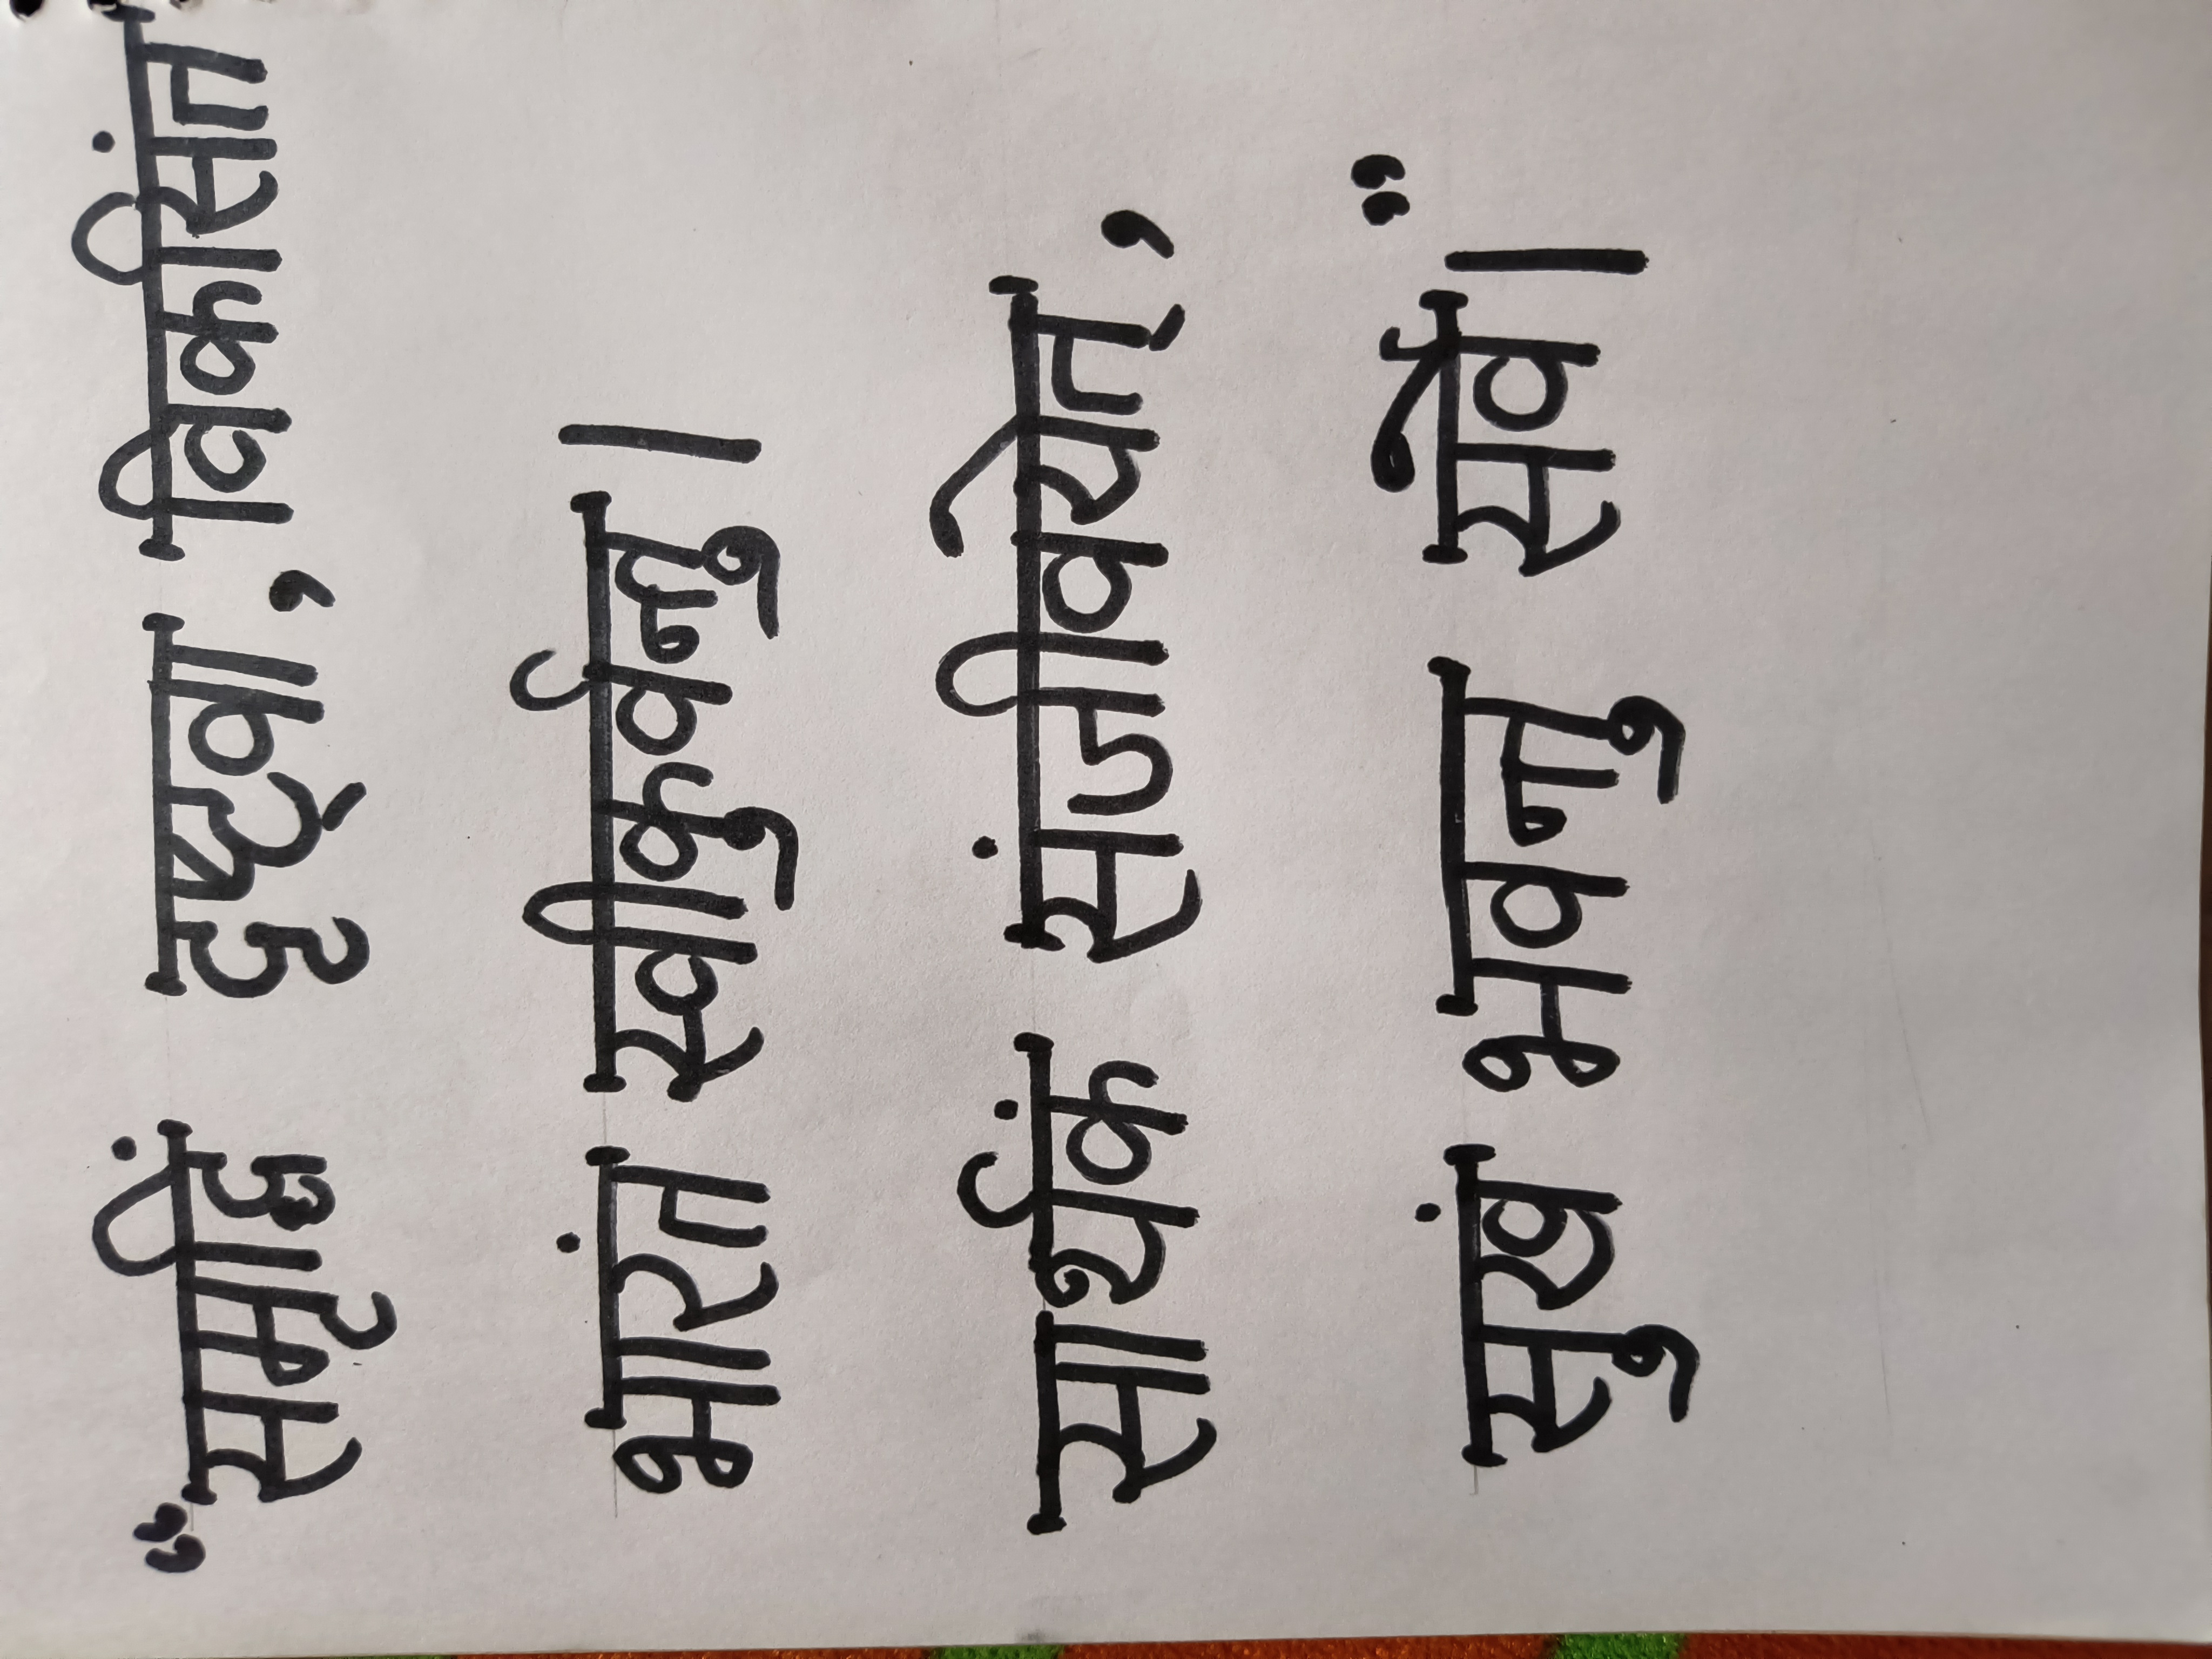 “समृद्धिं दृष्ट्वा, विकसिंत
भारंत स्वीकुर्वन्तु।
सार्थकं संजीवयेत्,
सुखं भवन्तु सर्वे।”